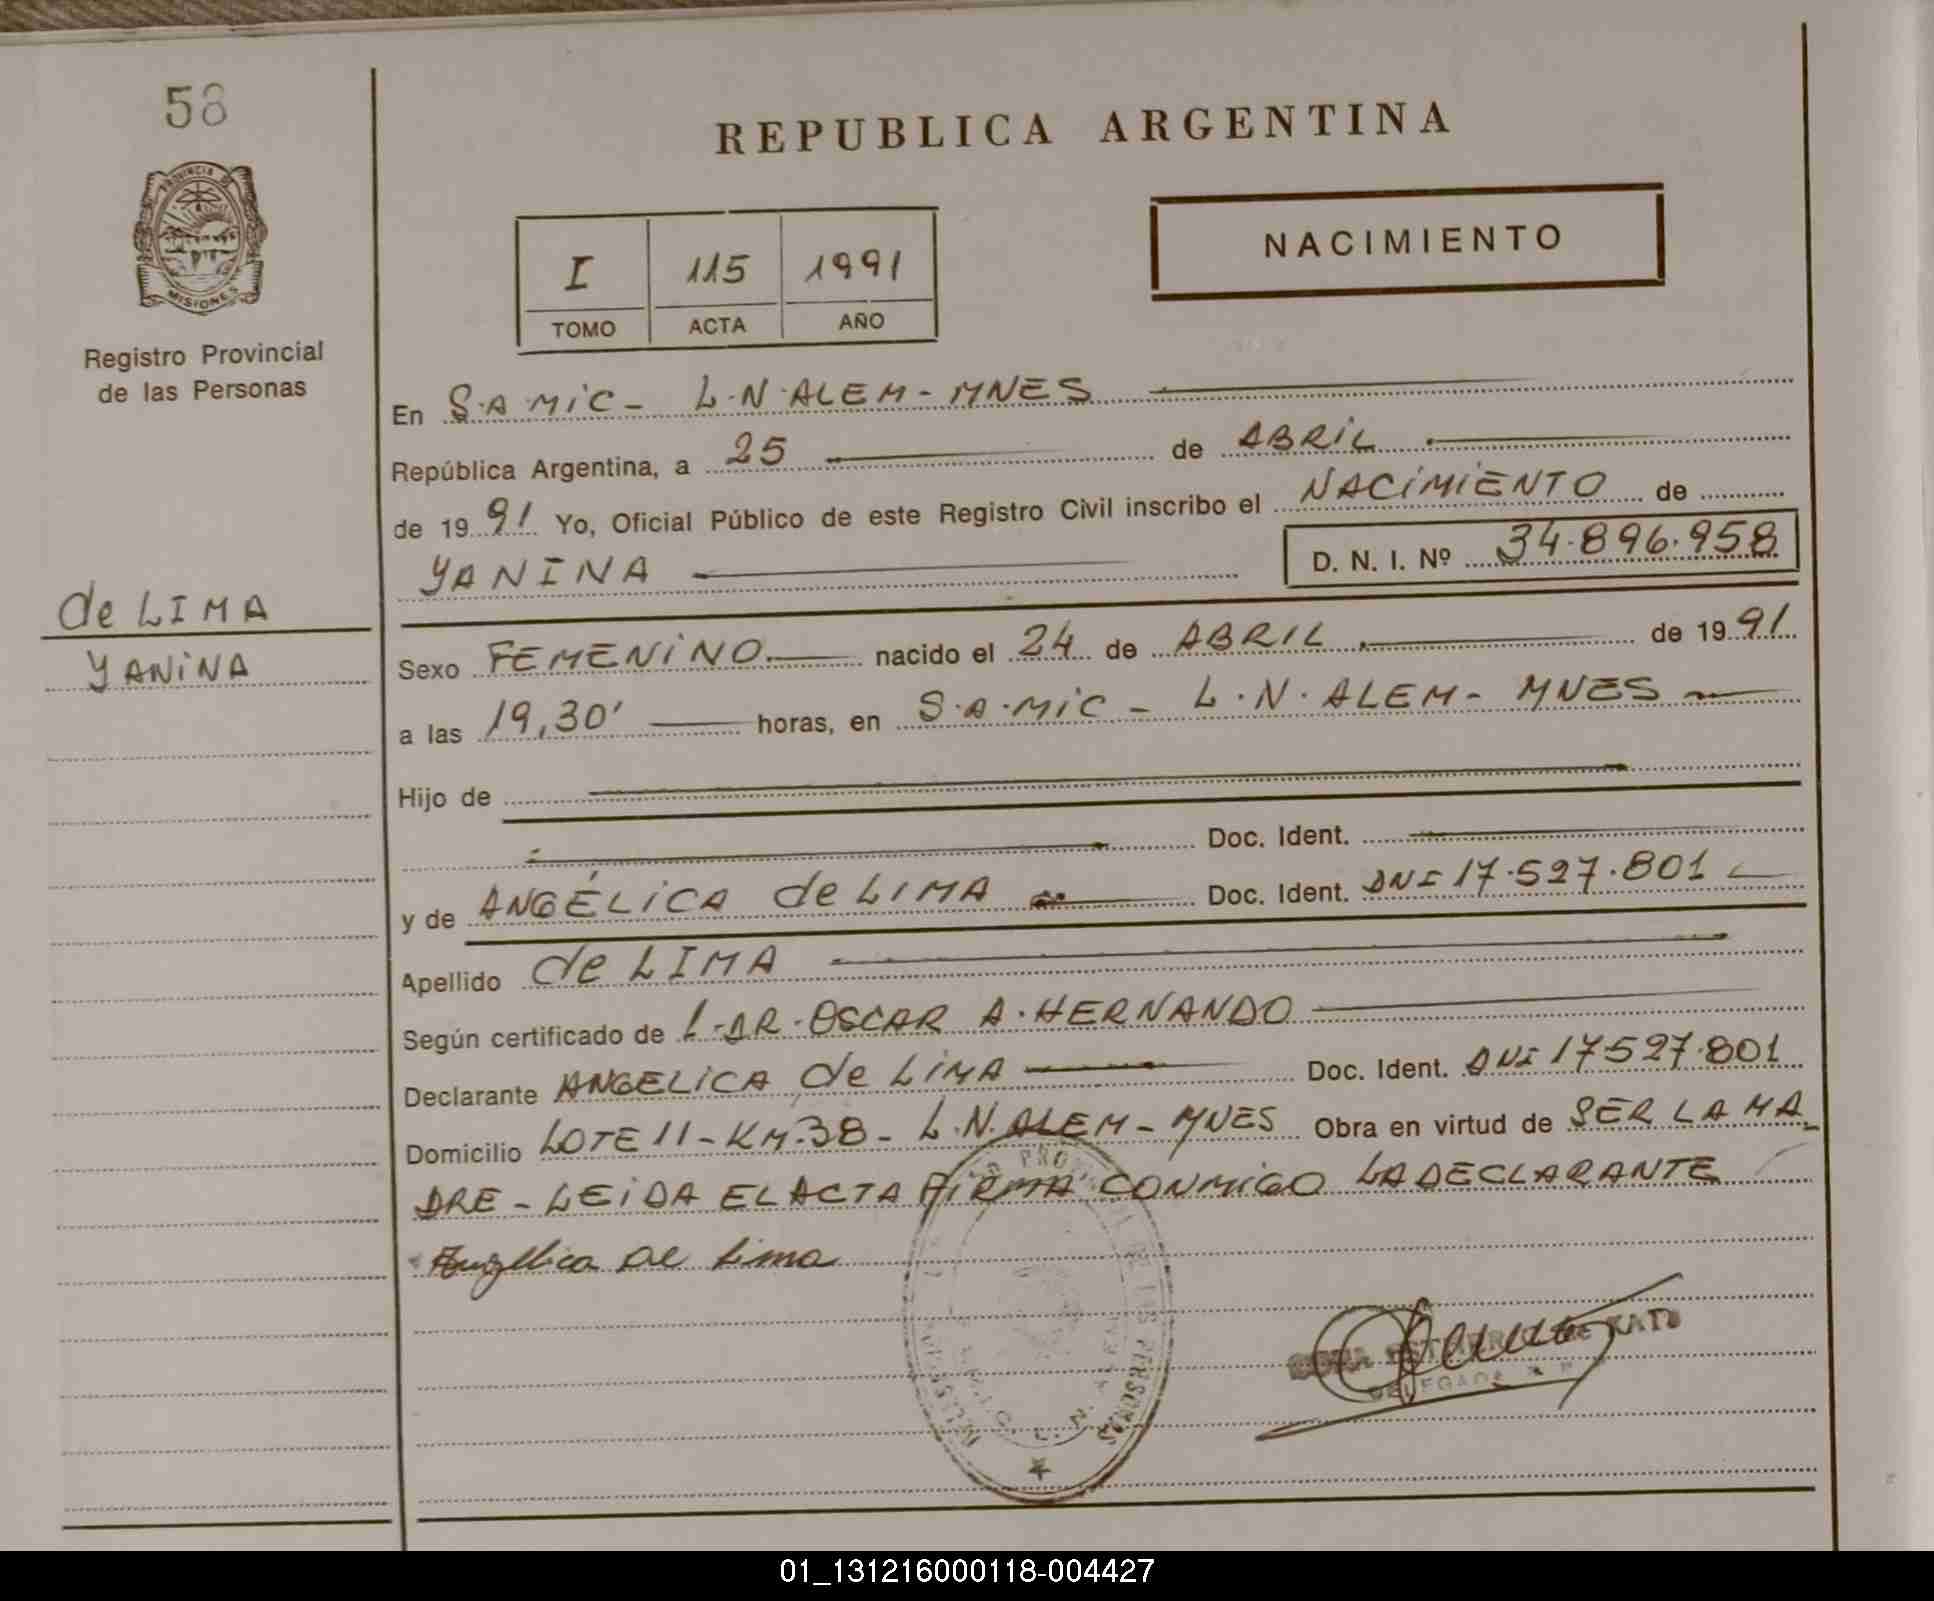 58
PROVINCIA DE
MISIONES
Registro Provincial
de las Personas
de LIMA
YANINA
REPUBLICA ARGENTINA
I 115 1991
TOMO ACTA AÑO
NACIMIENTO
En S.A.MIC - L.N.ALEM - MNES
República Argentina, a 25 de ABRIL
de 1991 Yo, Oficial Público de este Registro Civil inscribo el NACIMIENTO de
YANINA D. N. I. Nº 34.896.958
Sexo FEMENINO nacido el 24 de ABRIL de 1991
a las 19,30' horas, en S.A.MIC - L.N.ALEM - MNES
Hijo de
Doc. Ident.
y de ANGÉLICA de LIMA Doc. Ident. DNI 17.527.801
Apellido de LIMA
Según certificado de L.DR.OSCAR A.HERNANDO
Declarante ANGELICA de LIMA Doc. Ident. DNI 17527.801
Domicilio LOTE 11-KM.38- L.N.ALEM-MNES Obra en virtud de SER LA MA_
DRE - LEIDA EL ACTA FIRMA CONMIGO LA DECLARANTE
Angelica De Lima
DE LAS PERSONAS
MISIONES
DELEGADA
01_131216000118-004427